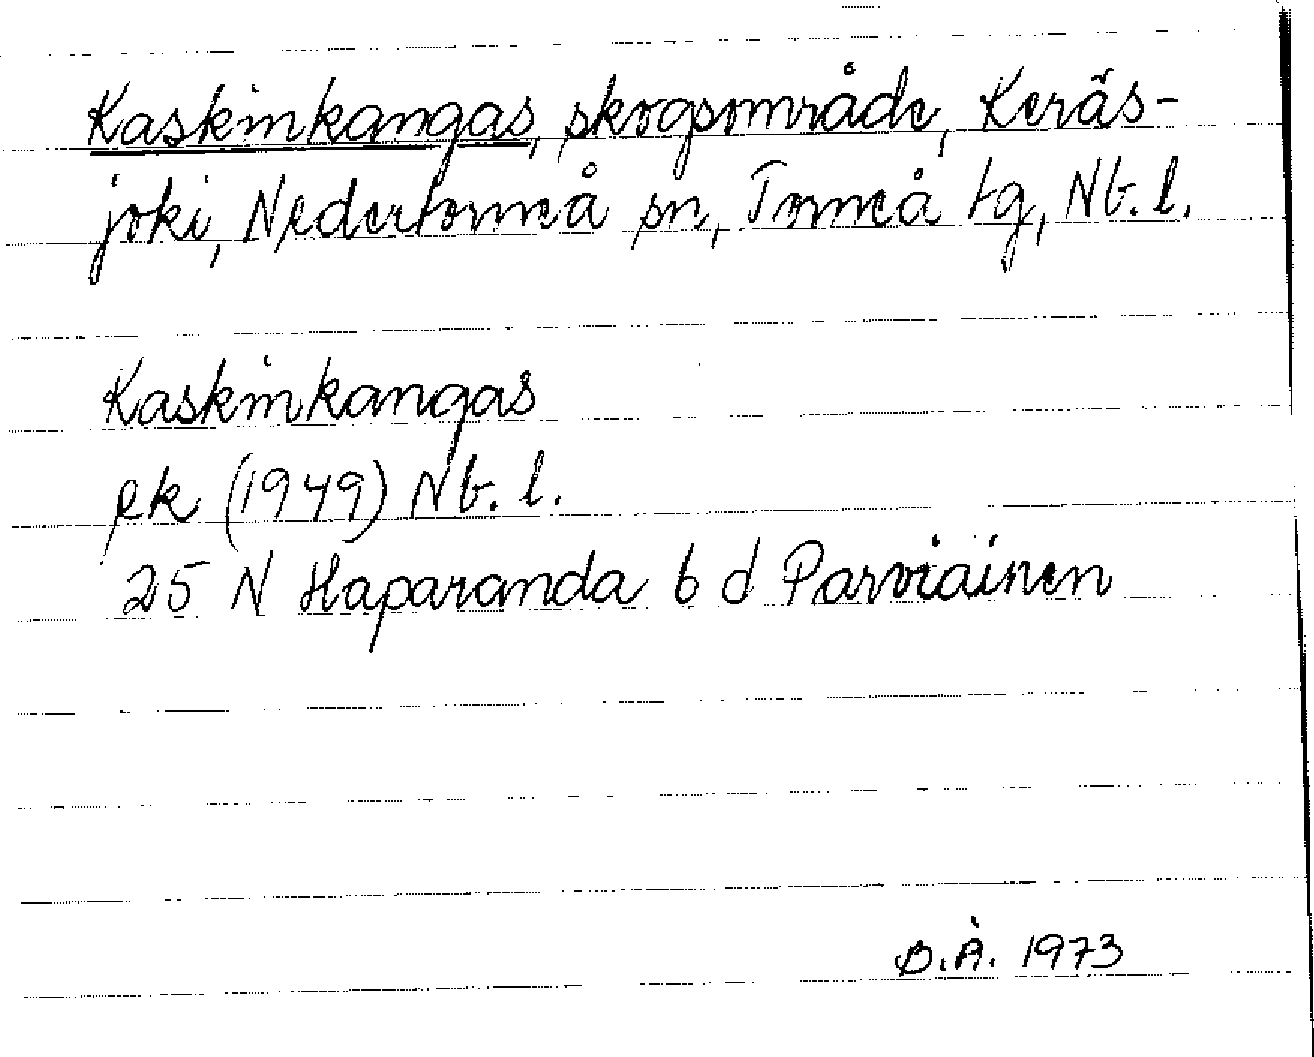 Kaskinkangas, skogsområde, Keräs-
joki, Nedertorneå sn, Torneå tg, Nb. l.
Kaskinkangas
ek (1949) Nb. l.
25 N Haparanda 6 d Parviainen
B.Å. 1973